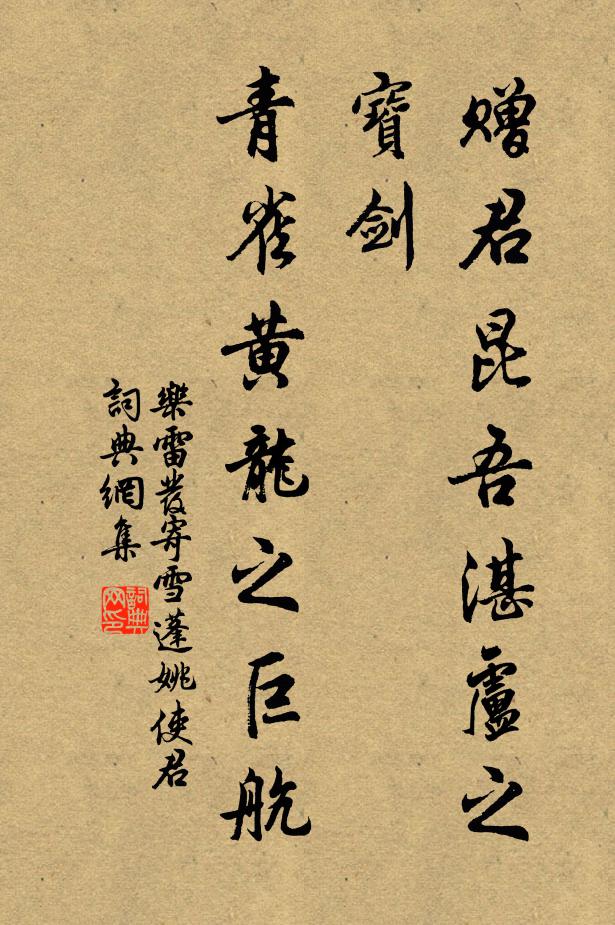 赠君昆吾湛盧之
寶剑
青雀黄龍之巨航
樂雷發寄雪蓬姚使君
詞典網集
詞典网印